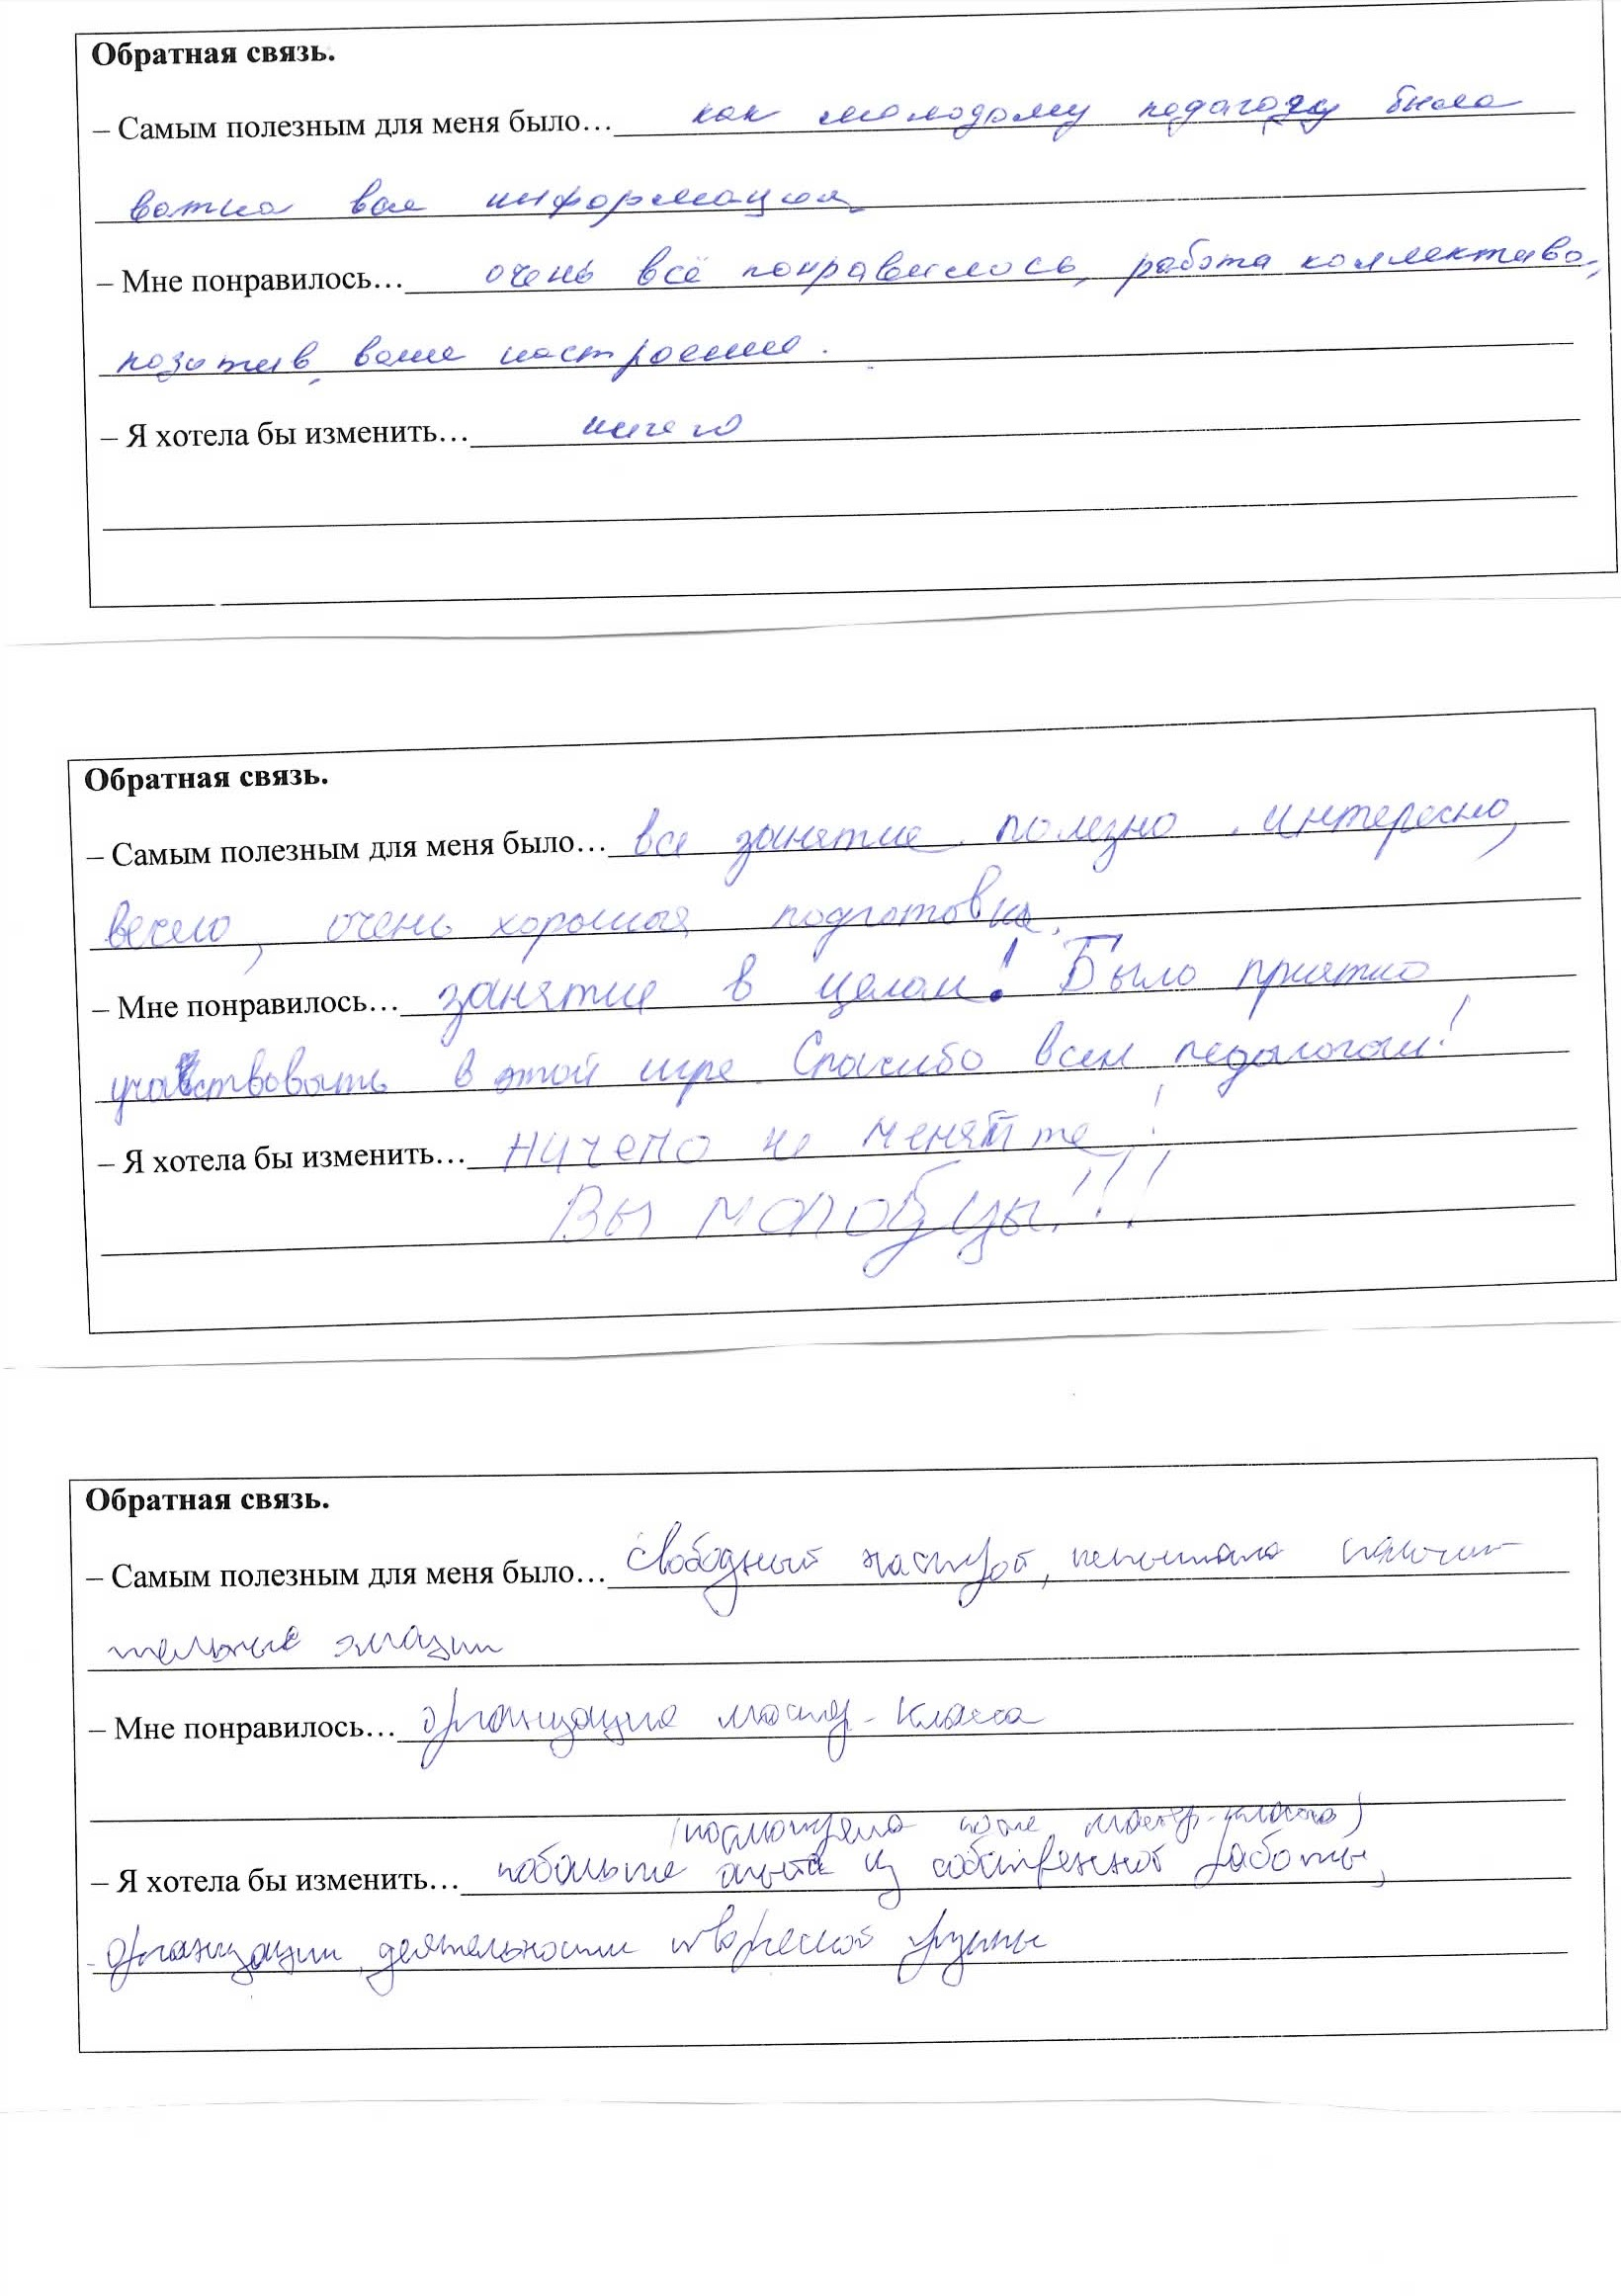 Обратная связь.
– Самым полезным для меня было… как молодому педагогу была
важна вся информация
– Мне понравилось… очень всё понравилось, работа коллектива,
позитив, ваше настроение.
– Я хотела бы изменить… ничего
Обратная связь.
– Самым полезным для меня было… все занятие полезно, интересно,
весело, очень хорошая подготовка.
– Мне понравилось… занятие в целом! Было приятно
учавствовать в этой игре. Спасибо всем педагогам!
– Я хотела бы изменить… ничего не меняйте!
Вы молодцы!!!
Обратная связь.
– Самым полезным для меня было… свободный настрой, испытала положи-
тельные эмоции
– Мне понравилось… организация мастер-класса
мастер-класса)
– Я хотела бы изменить… побольше опыта из собственной работы,
организации деятельности творческой группы